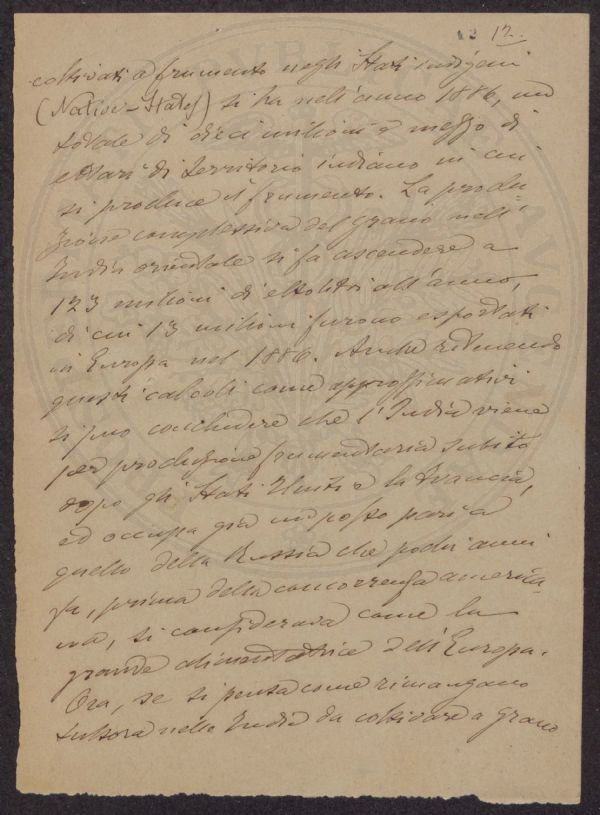 12.
coltivati a frumento negli Stati indigeni
(Native-States) si ha nell'anno 1886, un
totale di dieci milioni e mezzo di
ettari di territorio indiano in cui
si produce il frumento. La produ-
zione complessiva del grano nell'
India orientale si fa ascendere a
123 milioni di ettolitri all'anno,
di cui 13 milioni furono esportati
in Europa nel 1886. Anche ritenendo
questi calcoli come approssimativi
si può conchiudere che l'India viene
per produzione frumentaria subito
dopo gli Stati Uniti e la Francia,
ed occupa già un posto pari a
quello della Russia che pochi anni
fa, prima della concorrenza america-
na, si considerava come la
grande alimentatrice dell'Europa.
Ora, se si pensa come rimangano
tuttora nelle Indie da coltivare a grano